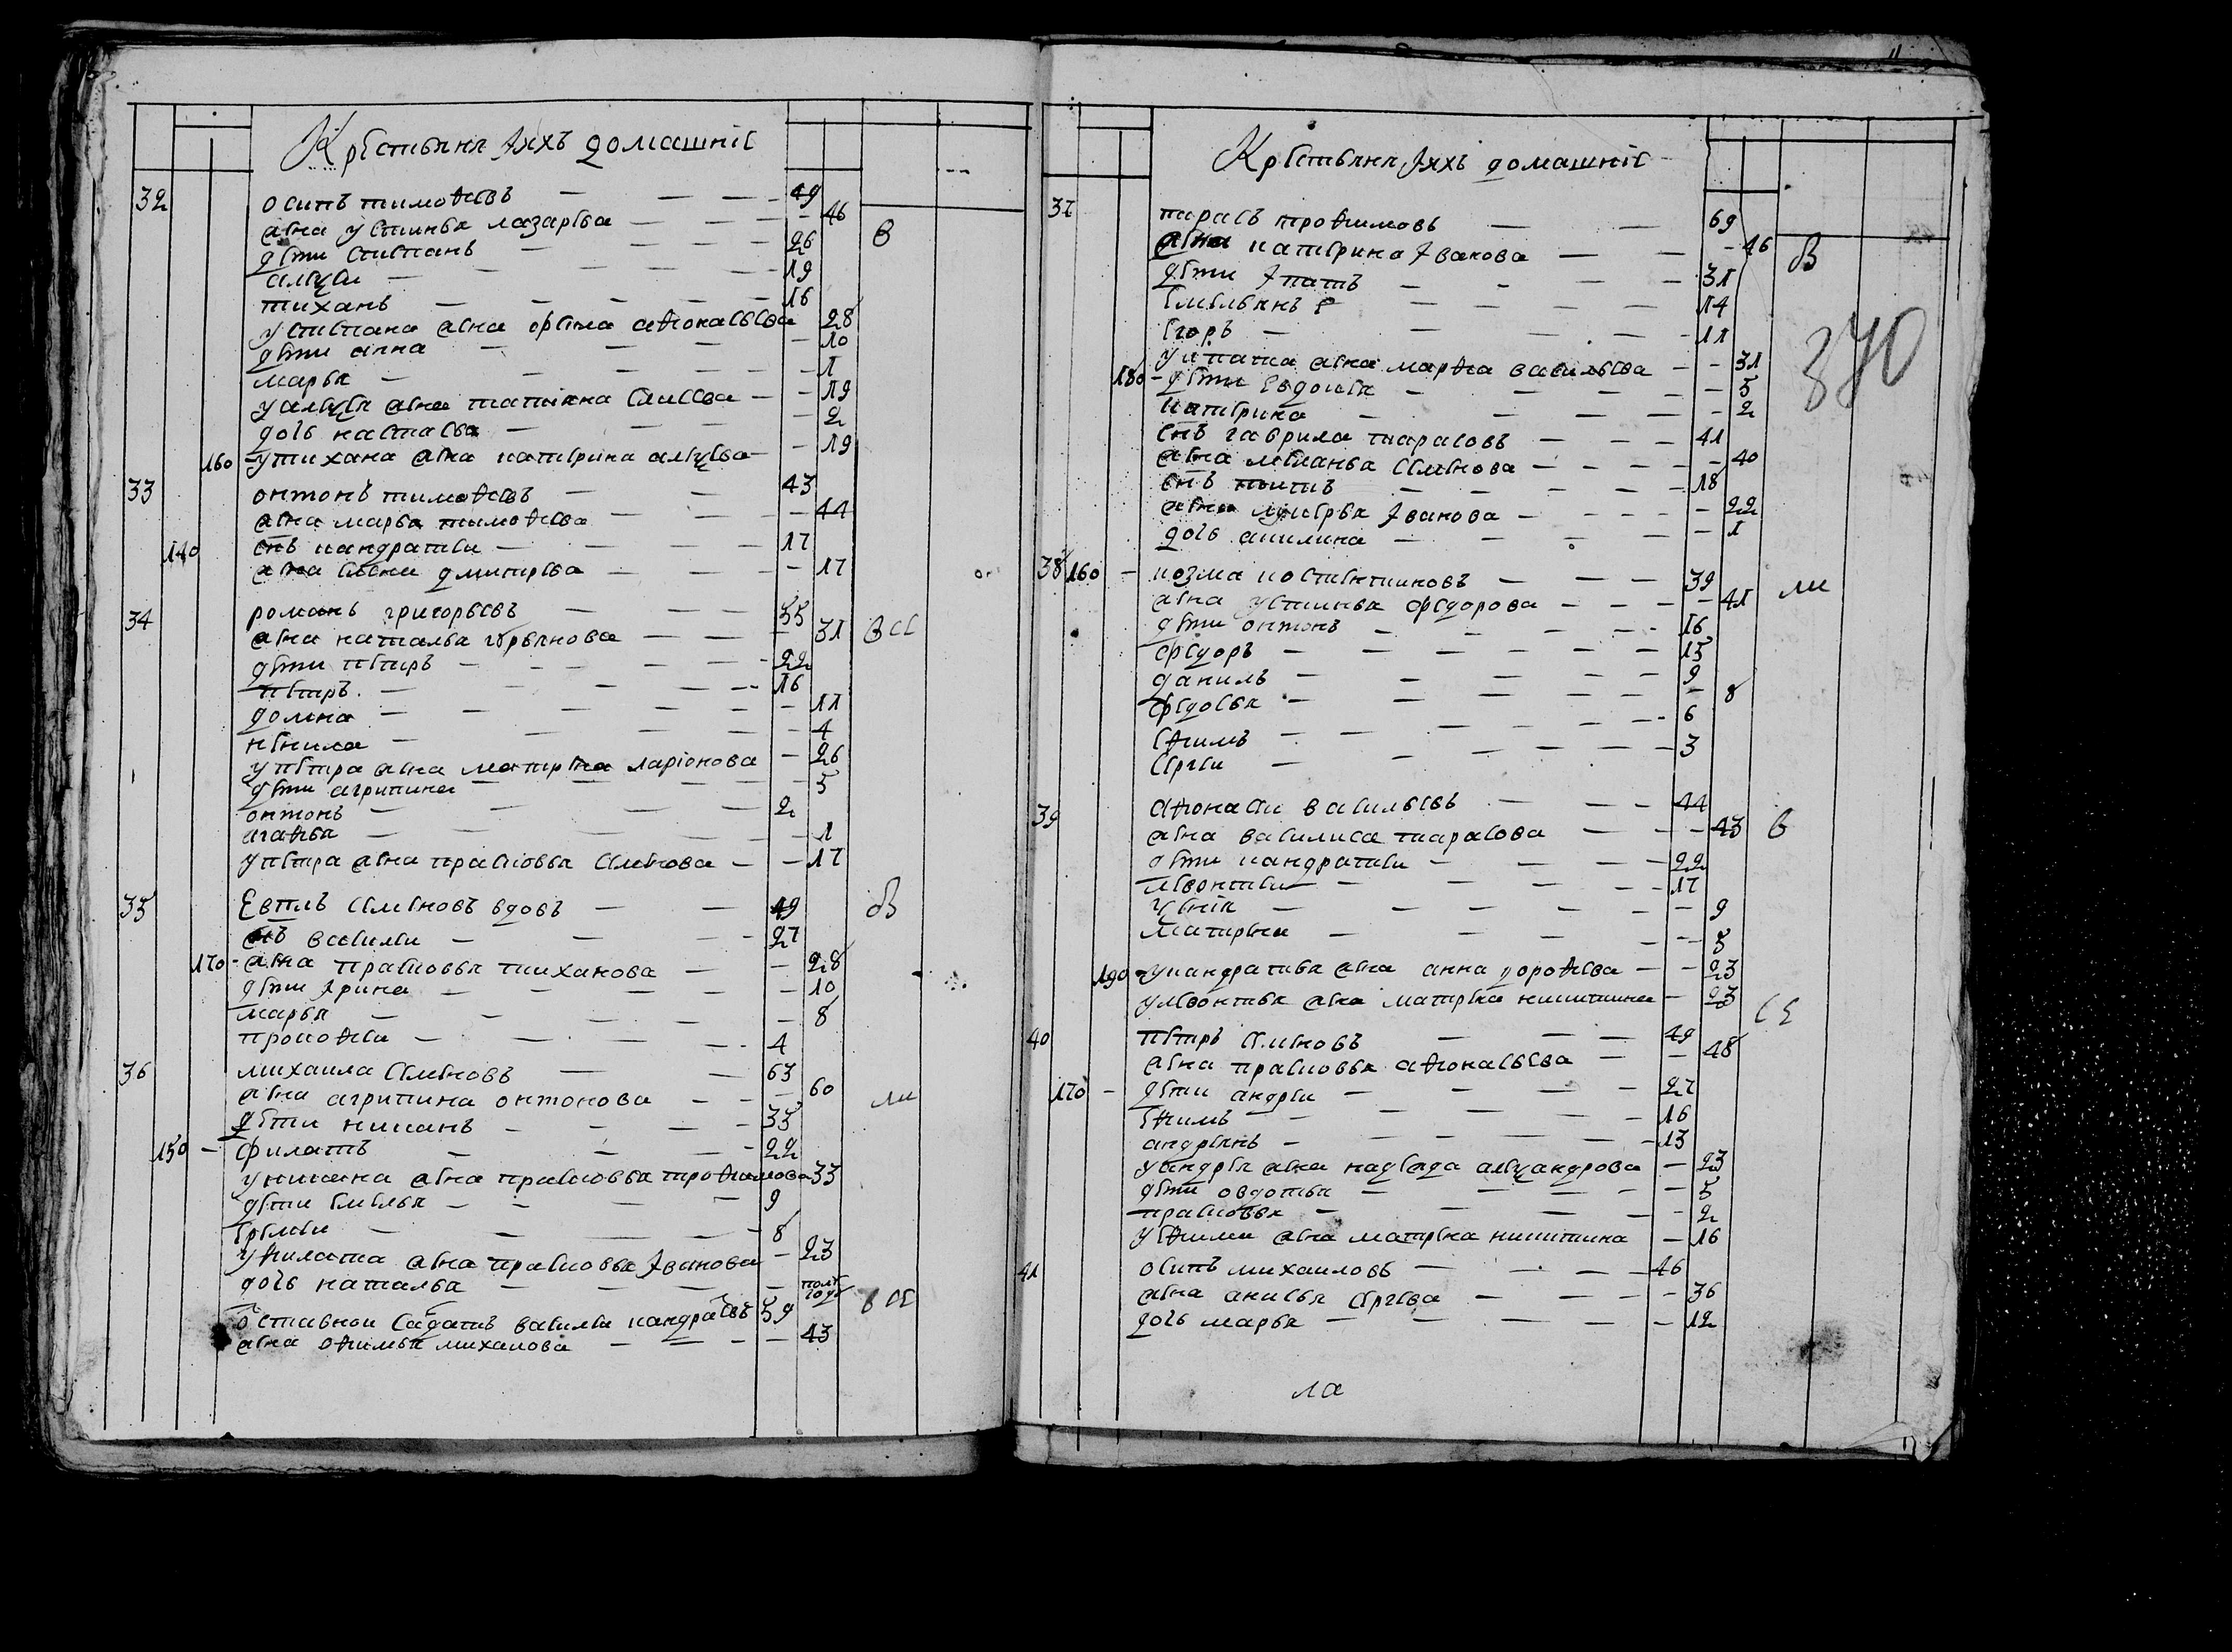 Крестьяня Iихъ домашніе
32 осипъ тимоѳеевъ 49
жена устинья лазарева 46 в
дети степанъ 26
алеѯеи 19
тиханъ 16
у степана жена ѳекла аѳонасьева 28
дети анна 10
марья 1
у алеѯея жена татьяна елисеева 19
дочь настасья 2
160 у тихана жена катерина алеѯеева 19
33 онтонъ тимоѳеевъ 43
жена марья тимоѳеева 44
140 снъ кандратеи 17
жена дмитрева 17
34 романъ григорьевъ 55
жена наталья 31 в се
дети петръ 22
петръ 16
домна 11
ненила 4
у петра жена матрена ларіонова 26
дети агрипина 5
онтонъ 2
агаѳья 1
у петра жена прасковья семенова 17
35 Евтлъ семеновъ вдовъ 49
снъ василеи 27
170 жена прасковья тиханова 28
дети Iрина 10
марья 8
прокоѳеи 4
36 михаила семеновъ 63
жена агрипина онтонова 60 ли
дети никанъ 35
150 филатъ 22
у никана жена прасковья троѳимова 33
дети емелья 9
еремеи 8
у ѳилата жена прасковья Iванова 23
дочь наталья полъ года
отставнои садатъ василеи кандраевъ 59 в се
жена оѳимья михаиова 43
Крестьяня Iихъ домашніе
37 тарасъ троѳимовъ 69
жена катерина Iванова 46
дети Iпатъ 31
емельянъ 14
егоръ 11
у ипата жена марѳа васильева 31
180 дети Евдокея 5
катерина 2
снъ гаврила тарасовъ 41
жена меланья семенова 40
снъ титъ 18
жена лукерья Iванова 22
дочь акилина 1
38 160 козма костентиновъ 39 ли
жена устинья ѳедорова 41
дети онтонъ 16
ѳедоръ 15
данилъ 9
ѳедосья 8
еѳимъ 6
сергеи 3
39 аѳонасеи васильевъ 44
жена василиса тарасова 43 в
дети кандратеи 22
левонтеи 17
ѯенія 9
матрена 5
190 у кандратья жена анна дороѳеева 23
у левонтья жена матрена никитина 23
се
40 петръ семеновъ 49
жена прасковья аѳонасьева 48
170 дети андреи 27
еѳимъ 16
андреянъ 13
у андрея жена надежда алеѯандрова 23
дети овдотья 5
прасковья 2
у еѳима жена матрена никитина 16
41 осипъ михаиловъ 46
жена анисья сергева 36
дочь марья 12
370
ла